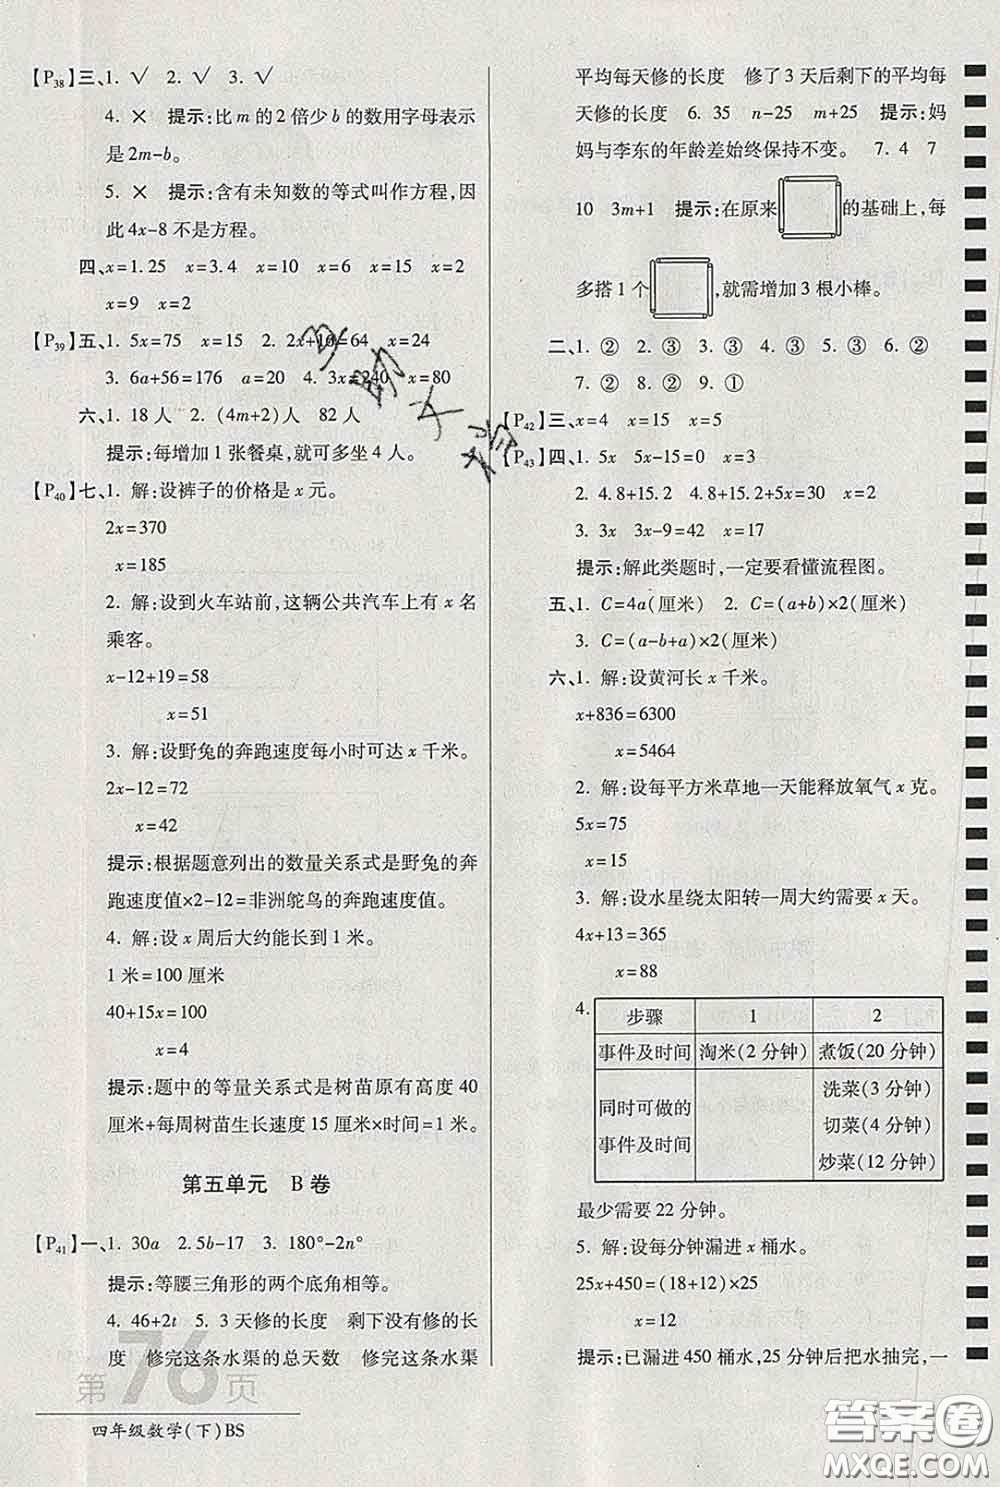 【P38】三、1. √ 2. √ 3. √
4. × 提示:比 m 的 2 倍少 b 的数用字母表示
是 2m-b。
5. × 提示:含有未知数的等式叫作方程,因
此 4x-8 不是方程。
四、x=1.25 x=3.4 x=10 x=6 x=15 x=2
x=9 x=2
【P39】五、1. 5x=75 x=15 2. 2x+16=64 x=24
3. 6a+56=176 a=20 4. 3x=240 x=80
六、1. 18 人 2. (4m+2)人 82 人
提示:每增加 1 张餐桌,就可多坐 4 人。
【P40】七、1. 解:设裤子的价格是 x 元。
2x=370
x=185
2. 解:设到火车站前,这辆公共汽车上有 x 名
乘客。
x-12+19=58
x=51
3. 解:设野兔的奔跑速度每小时可达 x 千米。
2x-12=72
x=42
提示:根据题意列出的数量关系式是野兔的奔
跑速度值×2-12=非洲鸵鸟的奔跑速度值。
4. 解:设 x 周后大约能长到 1 米。
1 米=100 厘米
40+15x=100
x=4
提示:题中的等量关系式是树苗原有高度 40
厘米+每周树苗生长速度 15 厘米×时间=1 米。
第五单元 B 卷
【P41】一、1. 30a 2.5b-17 3. 180°-2n°
提示:等腰三角形的两个底角相等。
4. 46+2t 5. 3 天修的长度 剩下没有修的长
度 修完这条水渠的总天数 修完这条水渠
第76页
四年级数学(下)BS
平均每天修的长度 修了 3 天后剩下的平均每
天修的长度 6. 35 n-25 m+25 提示:妈
妈与李东的年龄差始终保持不变。 7. 4 7
10 3m+1 提示:在原来的基础上,每
多搭 1 个,就需增加 3 根小棒。
二、1. ② 2. ③ 3. ③ 4. ③ 5. ③ 6. ②
7. ② 8. ② 9. ①
【P42】三、x=4 x=15 x=5
【P43】四、1. 5x 5x-15=0 x=3
2. 4.8+15.2 4.8+15.2+5x=30 x=2
3. 3x 3x-9=42 x=17
提示:解此类题时,一定要看懂流程图。
五、1. C=4a(厘米) 2. C=(a+b)×2(厘米)
3. C=(a-b+a)×2(厘米)
六、1. 解:设黄河长 x 千米。
x+836=6300
x=5464
2. 解:设每平方米草地一天能释放氧气 x 克。
5x=75
x=15
3. 解:设水星绕太阳转一周大约需要 x 天。
4x+13=365
x=88
4. 步骤 1 2
事件及时间 淘米(2 分钟) 煮饭(20 分钟)
同时可做的事件及时间 洗菜(3 分钟)
切菜(4 分钟)
炒菜(12 分钟)
最少需要 22 分钟。
5. 解:设每分钟漏进 x 桶水。
25x+450=(18+12)×25
x=12
提示:已漏进 450 桶水,25 分钟后把水抽完,一
答案圈
MXQE.COM